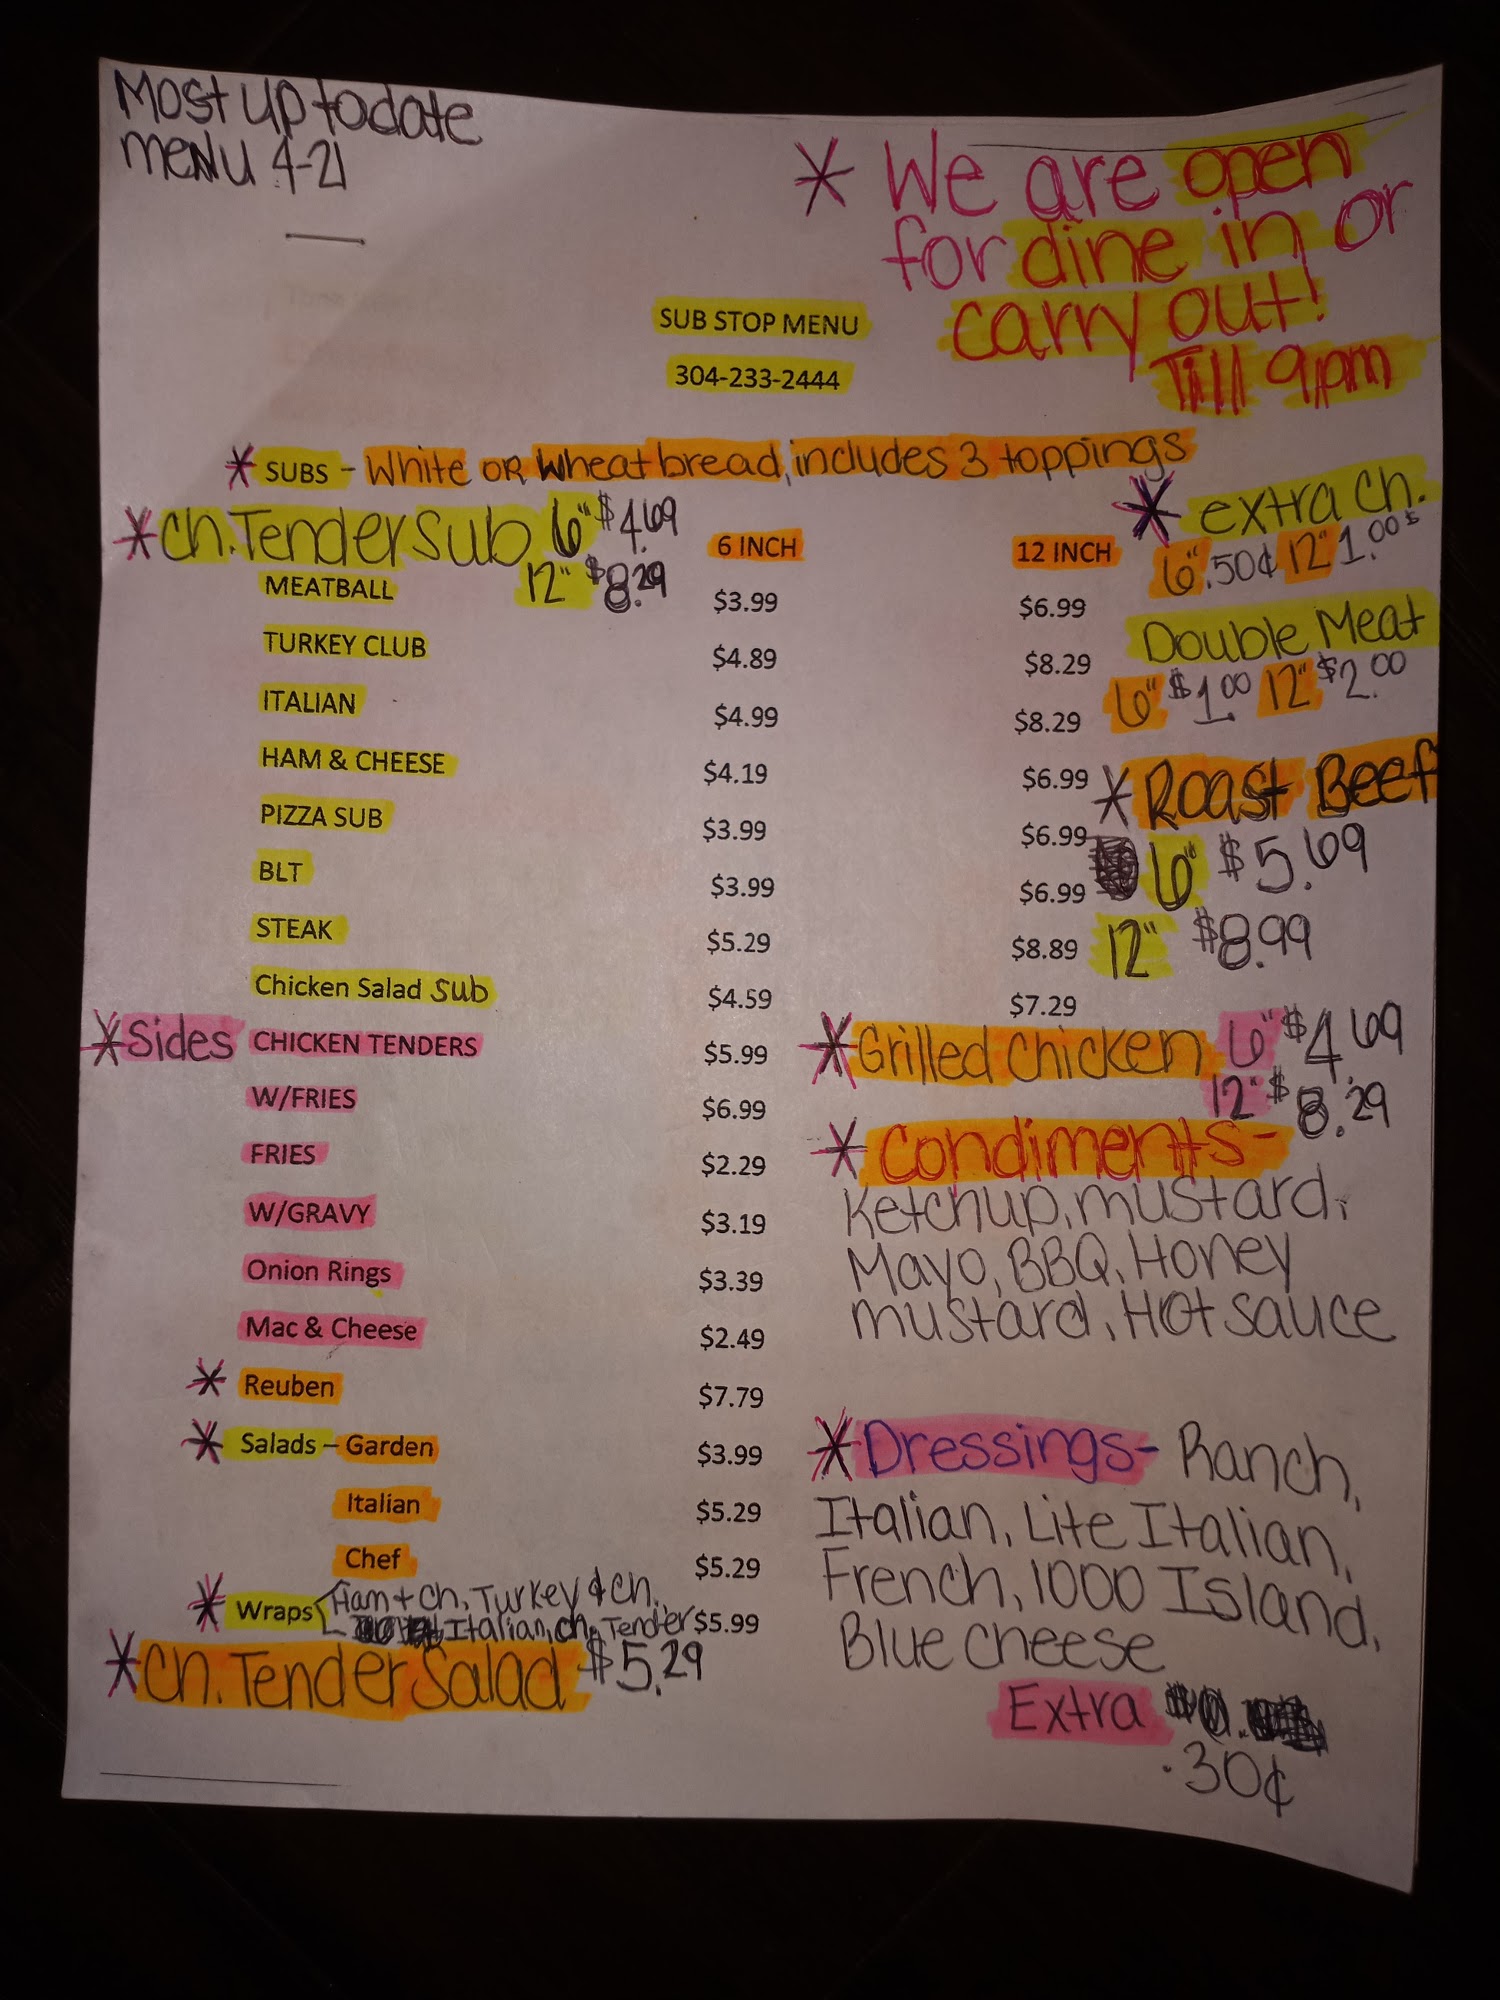 Most up to date
menu 4-21
* We are open
for dine in or
carry out!
Till 9pm
SUB STOP MENU
304-233-2444
* SUBS - White or wheat bread, includes 3 toppings
* Ch. Tender Sub 6" $4.69
12" $8.29
6 INCH 12 INCH
MEATBALL $3.99 $6.99
TURKEY CLUB $4.89 $8.29
ITALIAN $4.99 $8.29
HAM & CHEESE $4.19 $6.99
PIZZA SUB $3.99 $6.99
BLT $3.99 $6.99
STEAK $5.29 $8.89
Chicken Salad Sub $4.59 $7.29
* extra ch.
6" .50¢ 12" 1.00
Double Meat
6" $1.00 12" $2.00
* Roast Beef
6" $5.69
12" $8.99
* Grilled chicken 6" $4.69
12" $8.29
* Sides CHICKEN TENDERS $5.99
W/FRIES $6.99
FRIES $2.29
W/GRAVY $3.19
Onion Rings $3.39
Mac & Cheese $2.49
* Reuben $7.79
* Salads – Garden $3.99
Italian $5.29
Chef $5.29
* Wraps Ham + Ch, Turkey & Ch.
Italian, Ch. Tender $5.99
* Ch. Tender Salad $5.29
* Condiments-
Ketchup, mustard,
Mayo, BBQ, Honey
mustard, Hot sauce
* Dressings- Ranch,
Italian, Lite Italian,
French, 1000 Island,
Blue cheese
Extra
.30¢